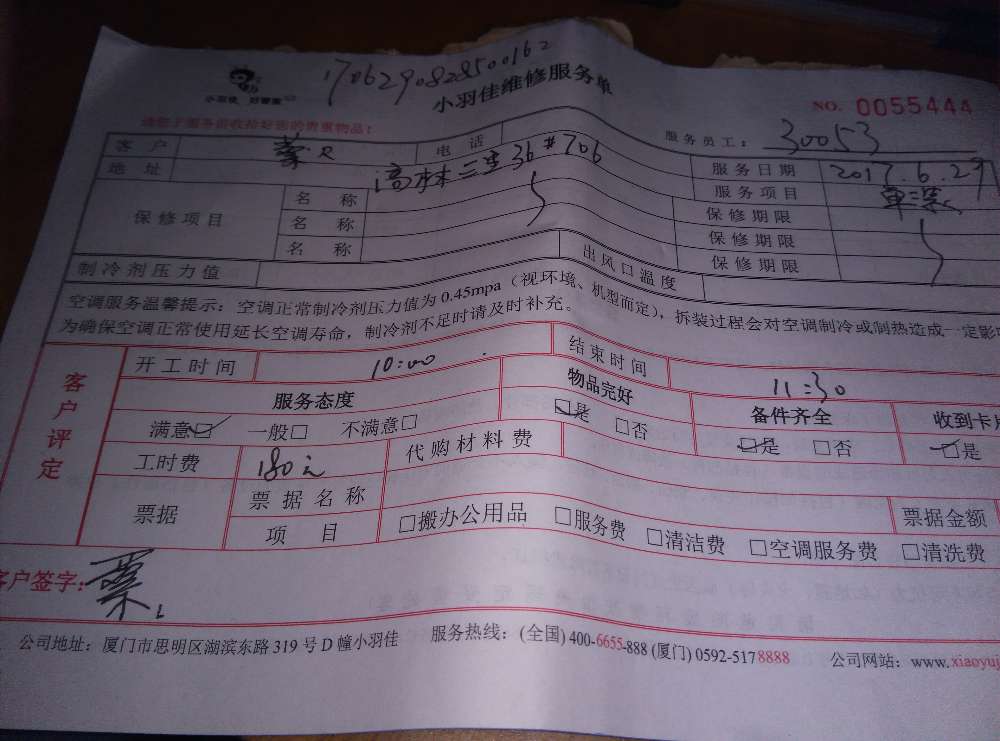 170629082850162
小羽佳 好管家
小羽佳维修服务单
NO. 0055444
请您于服务前收拾好您的贵重物品!
服务员工: 30053
客户 电话 服务日期 2017.6.29
地址 高林二里36#706 服务项目
保修项目 名称 保修期限
名称 保修期限
名称 保修期限
制冷剂压力值 出风口温度
空调服务温馨提示:空调正常制冷剂压力值为0.45mpa(视环境、机型而定),拆装过程会对空调制冷或制热造成一定影
为确保空调正常使用延长空调寿命,制冷剂不足时请及时补充。
客户评定
开工时间 10:00 结束时间 11:30
服务态度 物品完好 备件齐全 收到卡片
满意☑ 一般□ 不满意□ ☑是 □否 ☑是 □否 ☑是
工时费 180元 代购材料费
票据 票据名称 票据金额
项目 □搬办公用品 □服务费 □清洁费 □空调服务费 □清洗费
客户签字:
公司地址:厦门市思明区湖滨东路319号D幢小羽佳 服务热线:(全国)400-6655-888(厦门)0592-5178888 公司网站:www.xiaoyuj